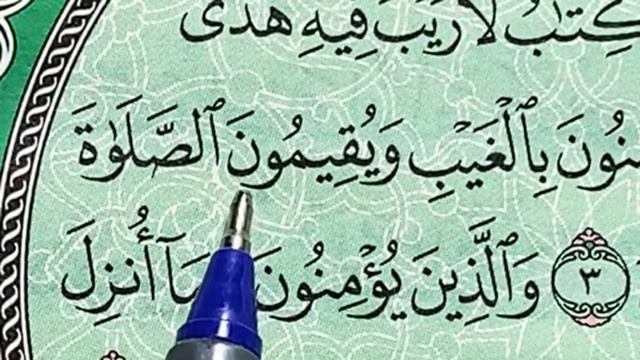 كِتَٰبُ لَا رَيْبَ فِيهِ هُدًى
بِٱلْغَيْبِ وَيُقِيمُونَ ٱلصَّلَوٰةَ
٣ وَٱلَّذِينَ يُؤْمِنُونَ أُنزِلَ